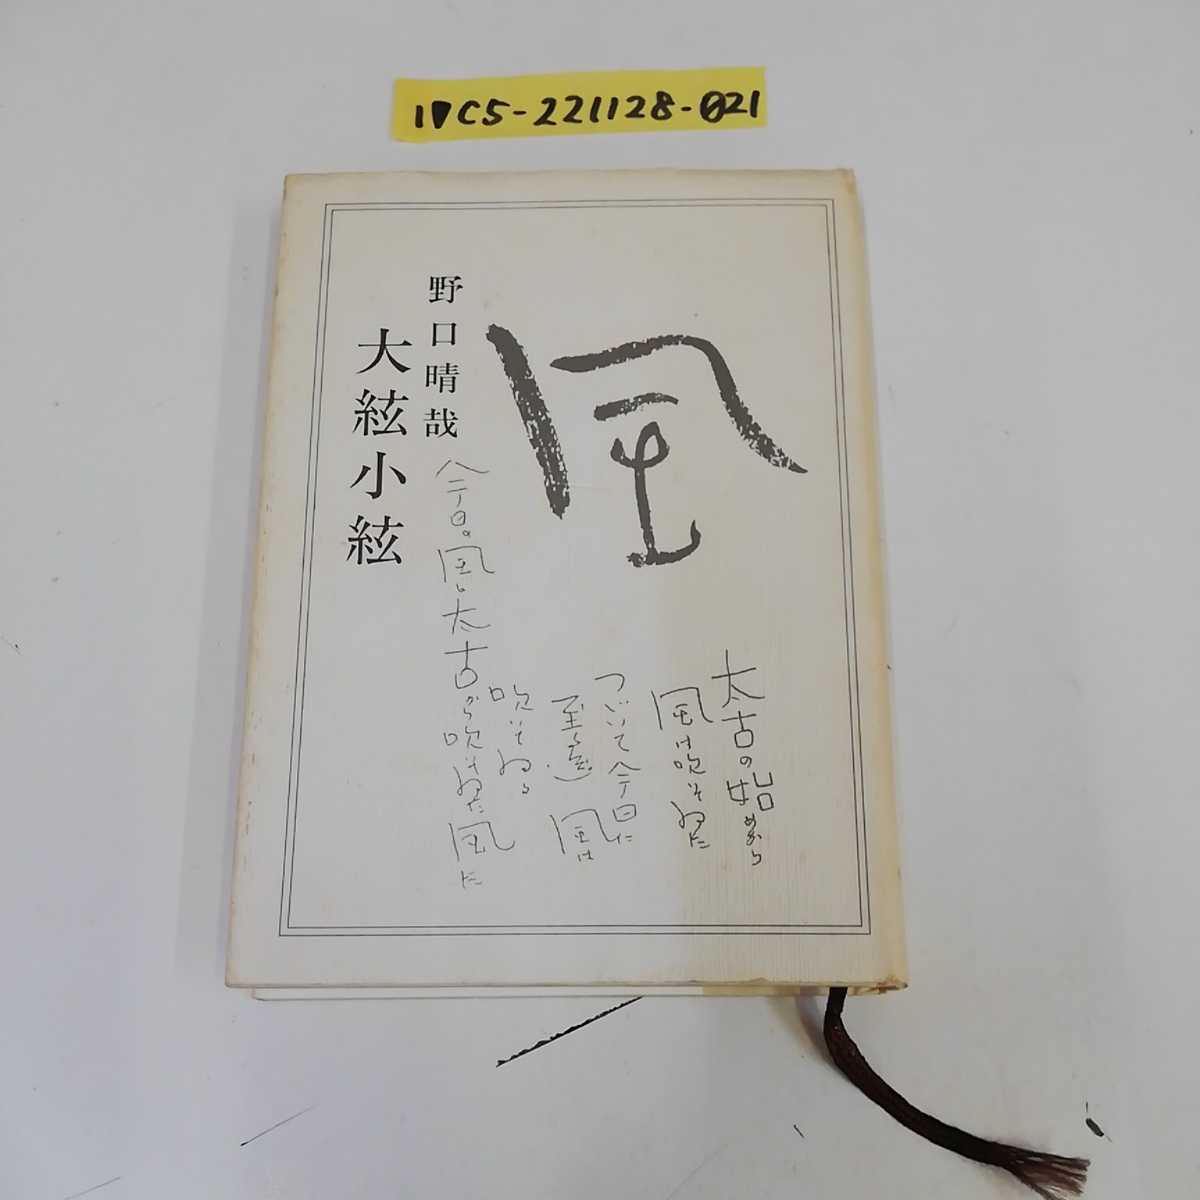 1▼C5-221128-021
風
野口晴哉
大絃小絃
太古の始めから
風は吹いてゐた
つゞいて今日に
風は
吹いてゐる
今日の風も太古から吹いてゐた風だ